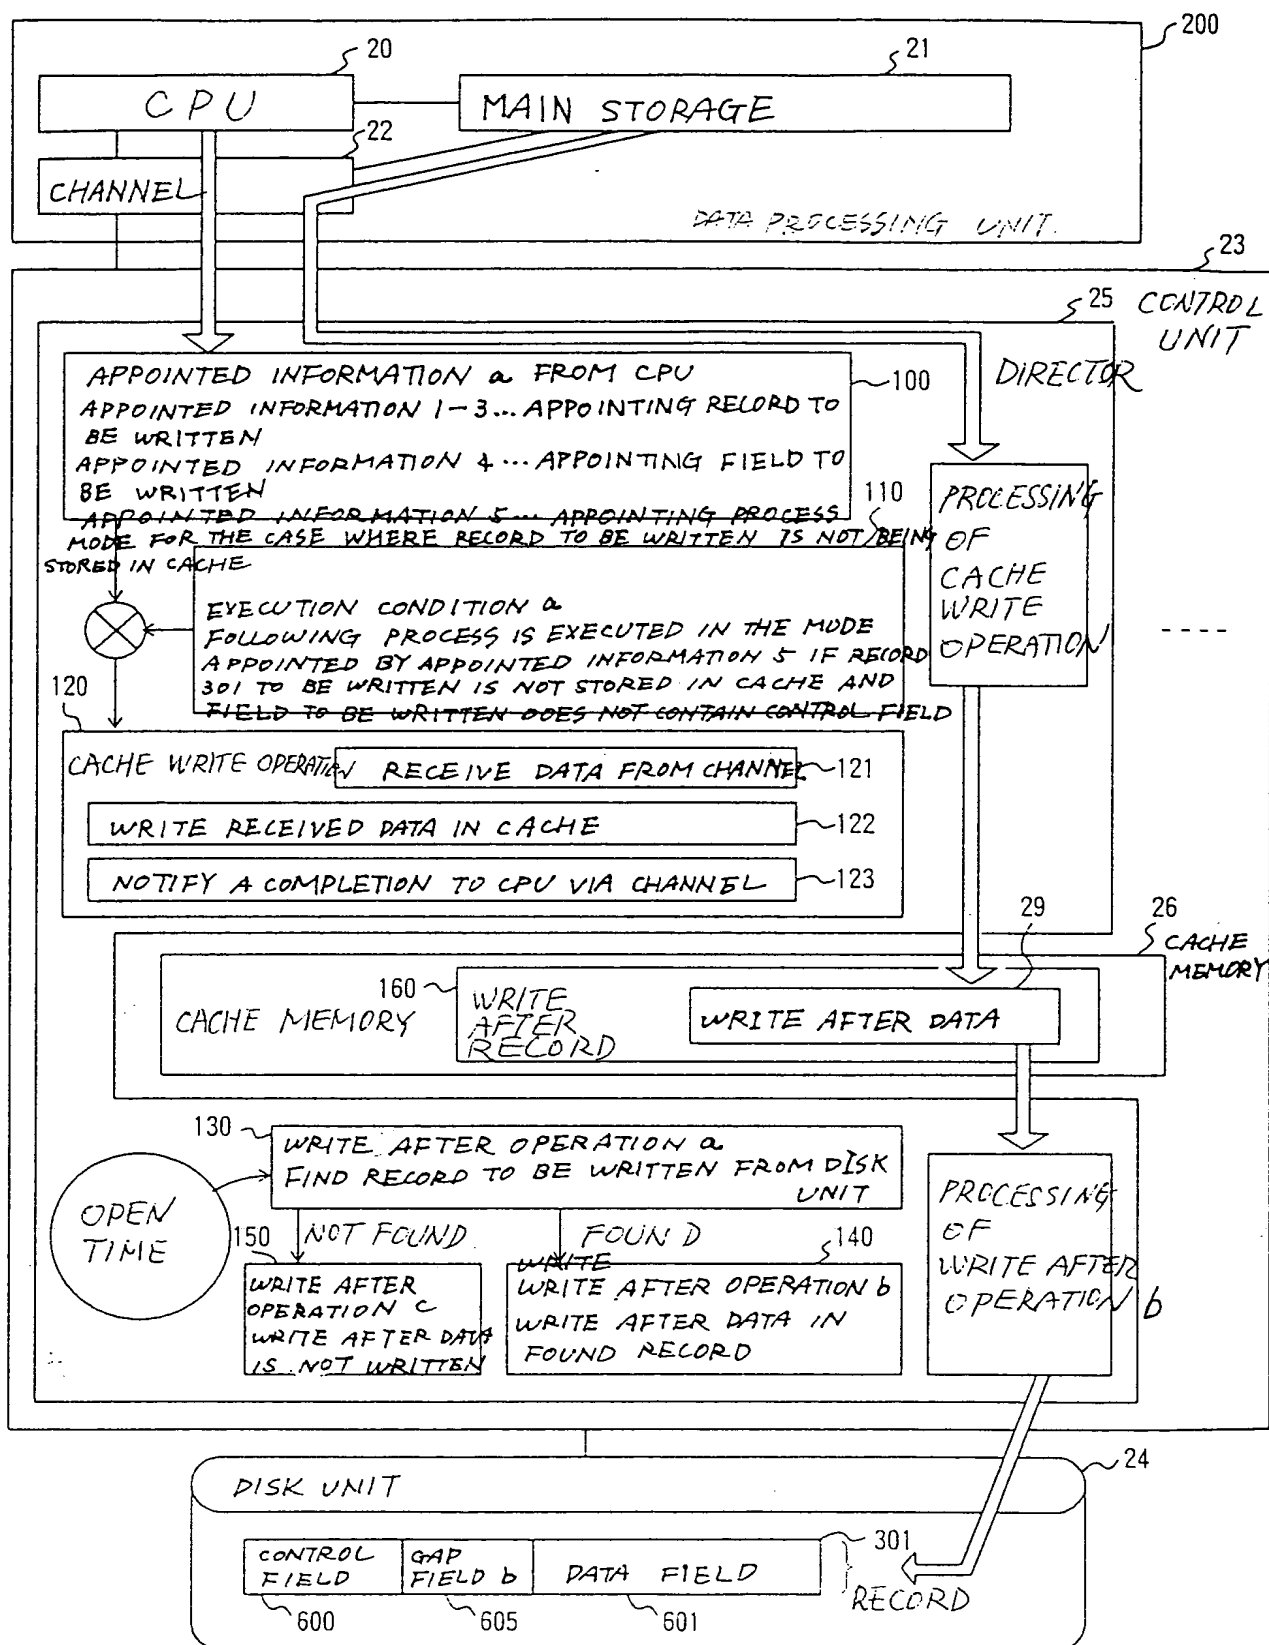 200
20
21
CPU
MAIN STORAGE
22
CHANNEL
DATA PROCESSING UNIT.
23
25
CONTROL
UNIT
DIRECTOR
APPOINTED INFORMATION a FROM CPU
100
APPOINTED INFORMATION 1-3... APPOINTING RECORD TO
BE WRITTEN
APPOINTED INFORMATION 4... APPOINTING FIELD TO
BE WRITTEN
APPOINTED INFORMATION 5... APPOINTING PROCESS
MODE FOR THE CASE WHERE RECORD TO BE WRITTEN IS NOT BEING
STORED IN CACHE
110
EXECUTION CONDITION a
FOLLOWING PROCESS IS EXECUTED IN THE MODE
APPOINTED BY APPOINTED INFORMATION 5 IF RECORD
301 TO BE WRITTEN IS NOT STORED IN CACHE AND
FIELD TO BE WRITTEN DOES NOT CONTAIN CONTROL FIELD
PROCESSING
OF
CACHE
WRITE
OPERATION
120
CACHE WRITE OPERATION
RECEIVE DATA FROM CHANNEL
121
WRITE RECEIVED DATA IN CACHE
122
NOTIFY A COMPLETION TO CPU VIA CHANNEL
123
29
26
CACHE
MEMORY
160
CACHE MEMORY
WRITE
AFTER
RECORD
WRITE AFTER DATA
130
WRITE AFTER OPERATION a
FIND RECORD TO BE WRITTEN FROM DISK
UNIT
OPEN
TIME
NOT FOUND
FOUND
150
140
WRITE AFTER
OPERATION c
WRITE AFTER DATA
IS NOT WRITTEN
WRITE
WRITE AFTER OPERATION b
WRITE AFTER DATA IN
FOUND RECORD
PROCESSING
OF
WRITE AFTER
OPERATION b
24
DISK UNIT
301
CONTROL
FIELD
GAP
FIELD b
DATA FIELD
RECORD
600
605
601